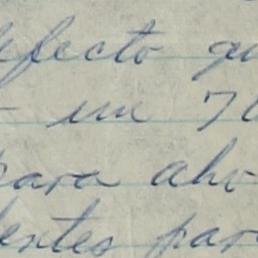 efecto qu
- un 70
para aho
entes par